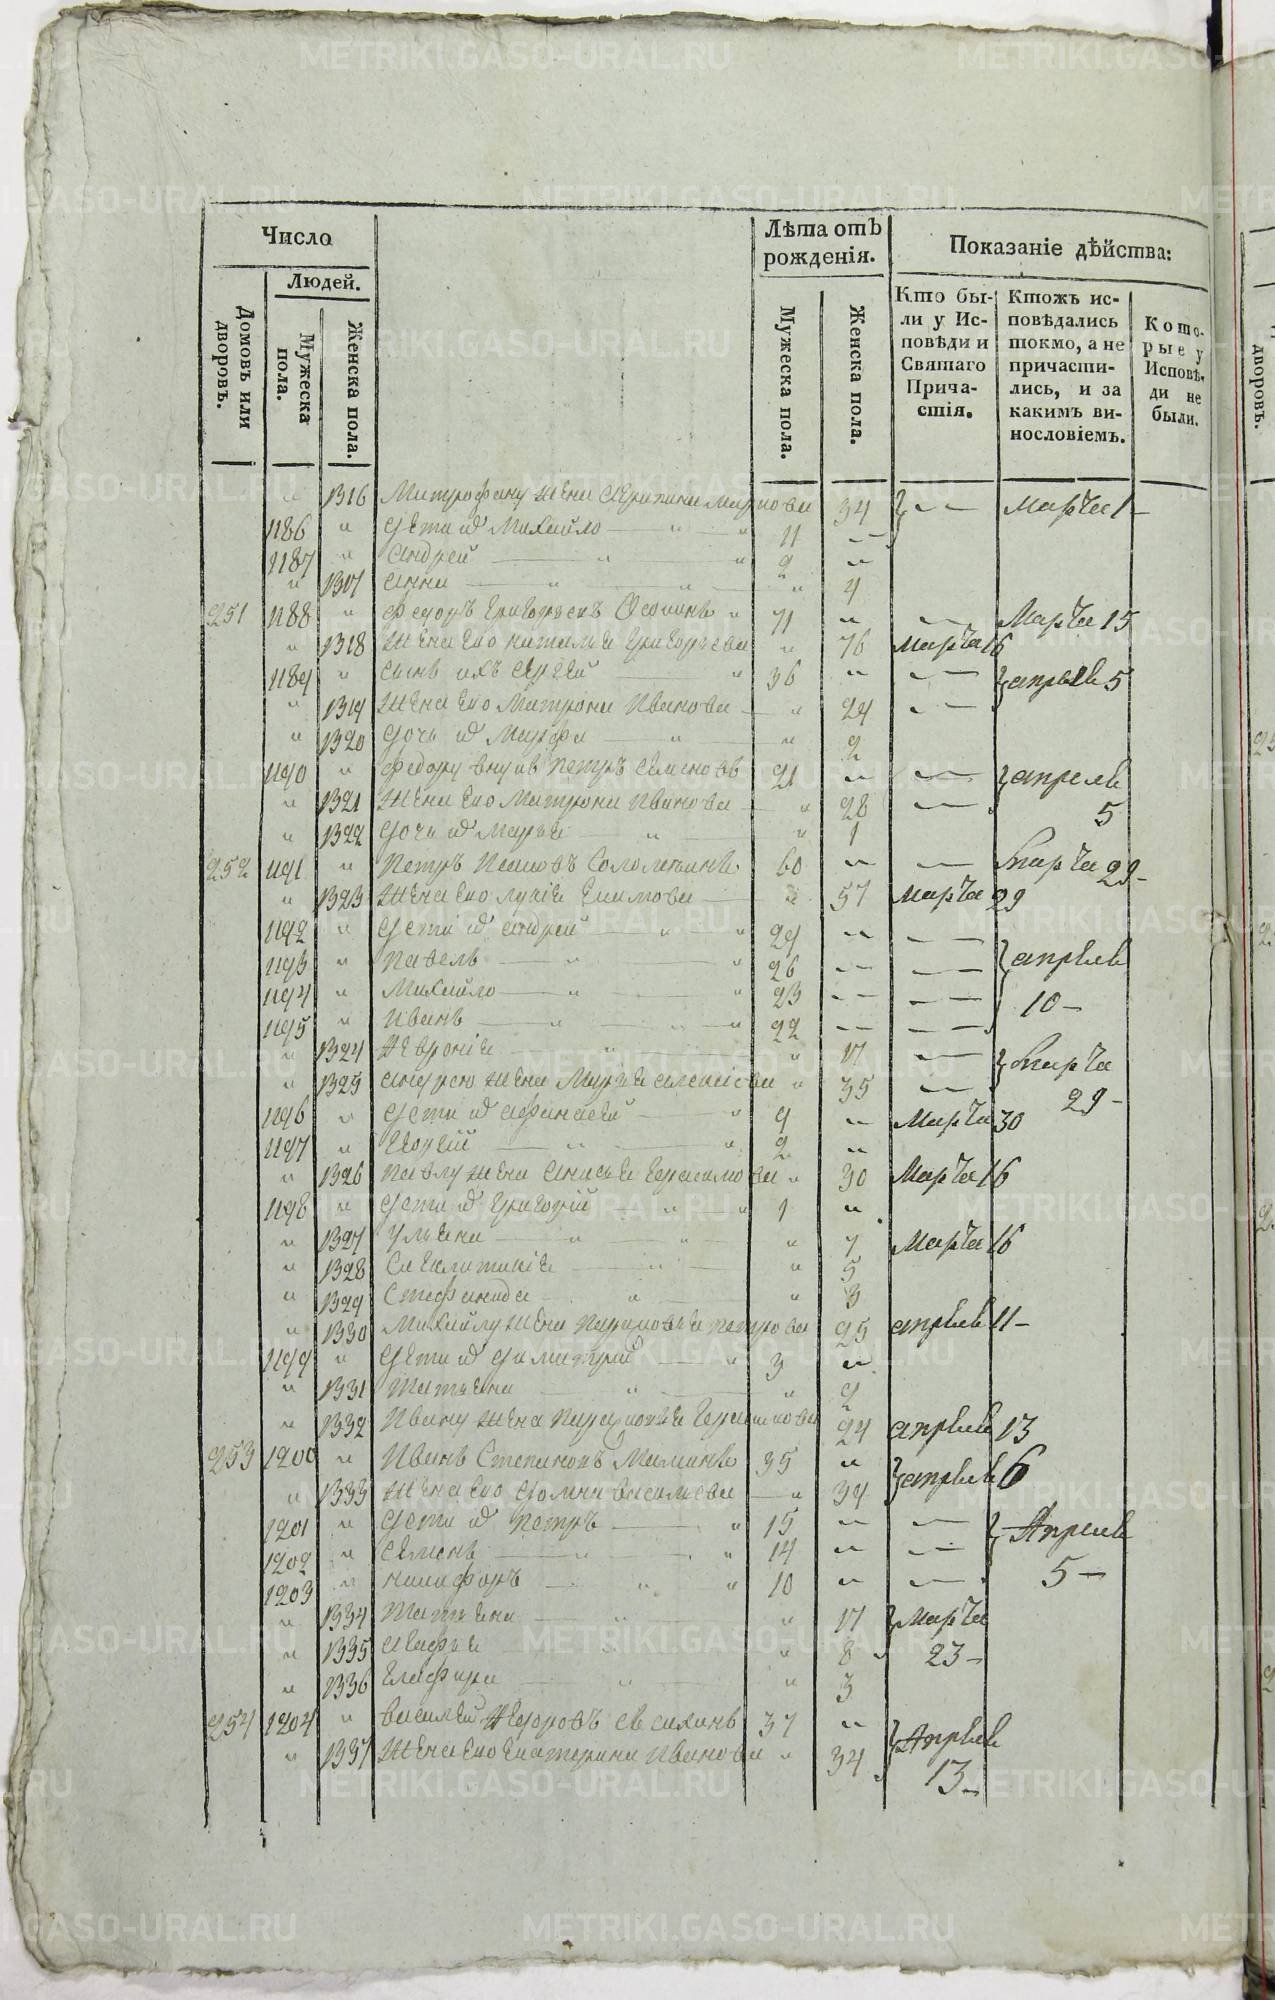 Число
Людей.
Домовъ или дворовъ.
Мужеска пола.
Женска пола.
Лѣта отъ рожденія.
Мужеска пола.
Женска пола.
Показаніе дѣйства:
Кто бы-
ли у Ис-
повѣди и
Святаго
Прича-
стія.
Ктожъ ис-
повѣдались
токмо, а не
причасти-
лись, и за
какимъ ви-
нословіемъ.
Кото-
рые у
Исповѣ-
ди не
были.
1316 Митрофану жена 34 Марта 1
1186 Дети ия Михайло 11
1187 Андрей 9
1317 Анна 4
251 1188 Федоръ Григорьевъ Осокинъ 71 Марта 15
1318 Жена ево Наталья Григорьева 76 Марта 16
1189 Сынъ ихъ Сергей 36 апреля 5
1319 Жена ево Матрона Иванова 29
1320 Дочь ия Марфа 2
1190 Федору внукъ Петръ Семеновъ 21 апреля
1321 Жена ево Матрона Иванова 28 5
1322 Дочь ия Марья 1
252 1191 Петръ 60 Марта 29
1323 Жена ево Лукия 57 Марта 29
1192 Дети ия Андрей 29
1193 Павелъ 26 апреля
1194 Михайло 23 10
1195 Иванъ 22
1324 17 Марта
1325 Андрею жена Марья 35 29
1196 Дети ия Афанасей 9 Марта 30
1197 Георгий 2
1326 Павлу жена Анисья Герасимова 30 Марта 16
1198 Дети ия Григорий 1
1327 Ульяна 7 Марта 16
1328 5
1329 Стефанида 3
1330 Михайлу жена Парасковья Петрова 25 апреля 11
1199 Дети ия Димитрий 3
1331 Татьяна 2
1332 Ивану жена Парасковья Герасимова 24 апреля 13
253 1200 Иванъ Степановъ Маминъ 35 апреля 6
1333 Жена ево Домна Васильева 34
1201 Дети ия Петръ 15 Апреля
1202 Семенъ 14
1203 Никифоръ 10 5
1334 Татьяна 17 Марта
1335 Агафья 8 23
1336 Глафира 3
254 1204 Василей Федоровъ 37 Апреля
1337 Жена ево Екатерина Иванова 34 13
дворовъ.
METRIKI.GASO-URAL.RU